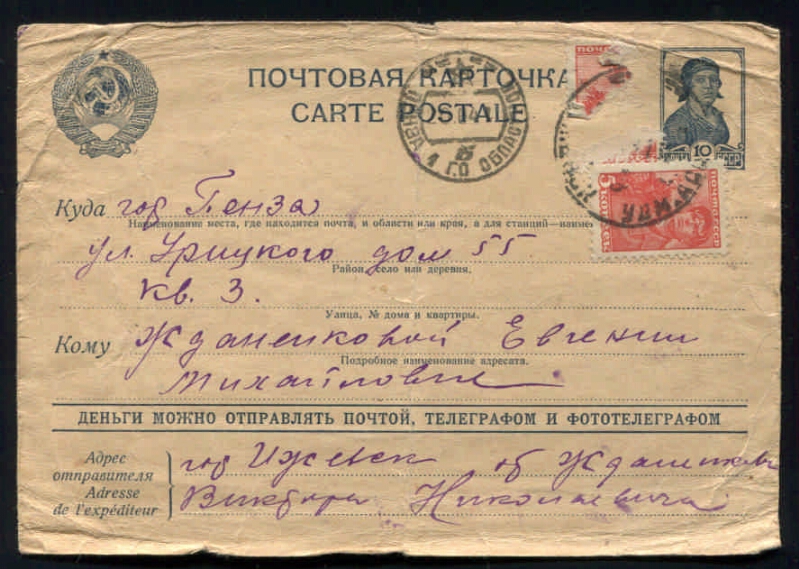 ПОЧТОВАЯ КАРТОЧКА
CARTE POSTALE
10
СССР
5
Куда гор Пенза
Наименование места, где находится почта, и области или края, а для станций—
ул. Урицкого дом 55
Район, село или деревня.
кв. 3.
Улица, № дома и квартиры.
Кому Жданенковой Евгении
Подробное наименование адресата.
Михайловне
ДЕНЬГИ МОЖНО ОТПРАВЛЯТЬ ПОЧТОЙ, ТЕЛЕГРАФОМ И ФОТОТЕЛЕГРАФОМ
Адрес отправителя
Adresse de l'expéditeur
гор Ижевск от Жданенкова
Виктора Николаевича